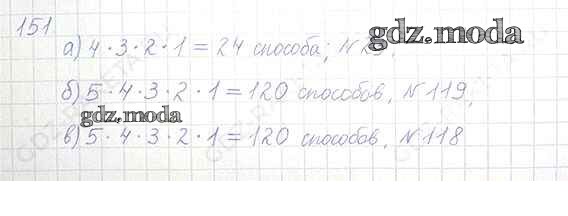 151
gdz.moda
а) 4 · 3 · 2 · 1 = 24 способа; N
б) 5 · 4 · 3 · 2 · 1 = 120 способов, N 119,
gdz.moda
в) 5 · 4 · 3 · 2 · 1 = 120 способов, N 118